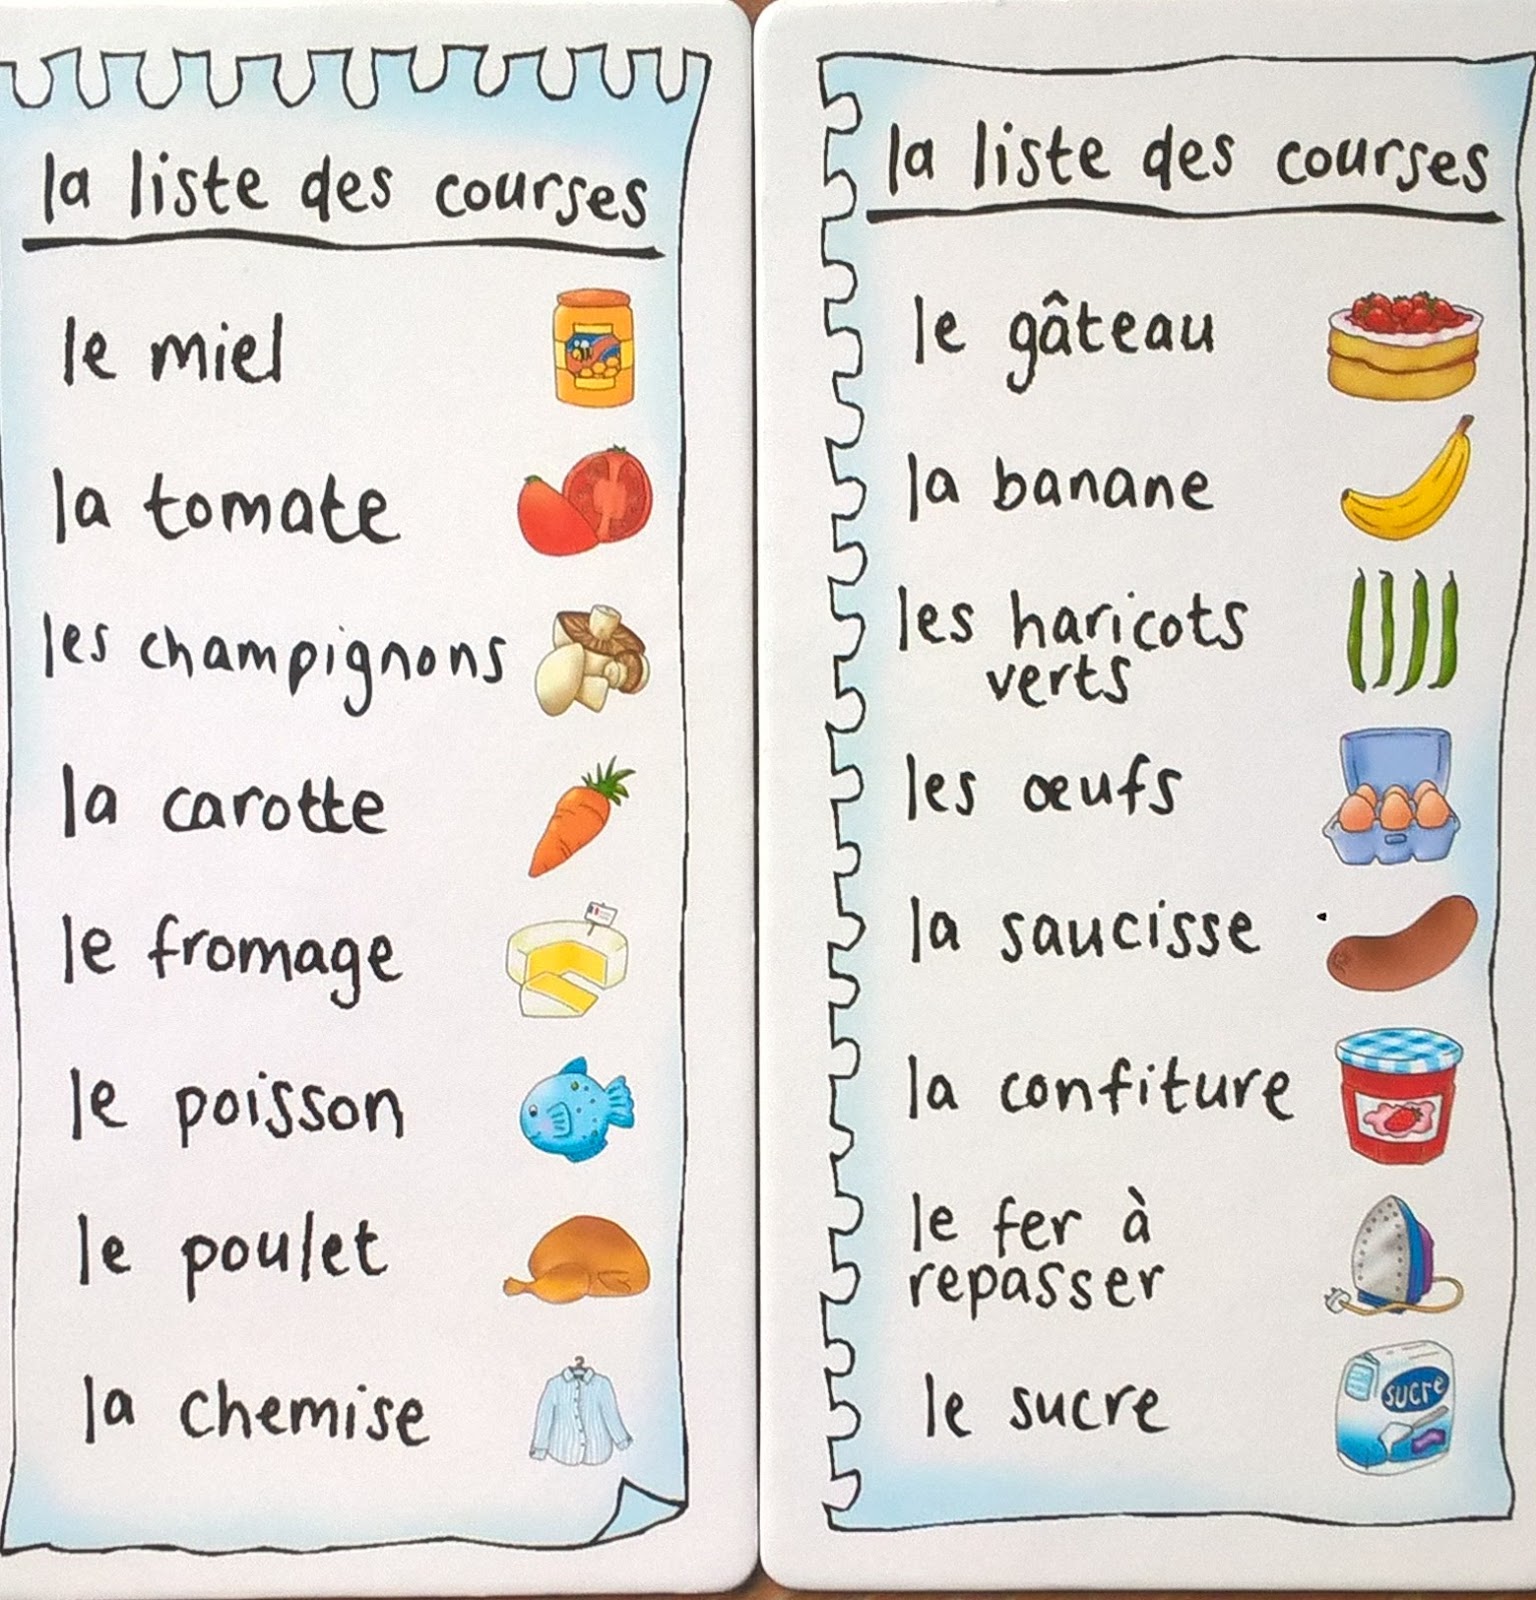 la liste des courses
le miel
la tomate
les champignons
la carotte
le fromage
le poisson
le poulet
la chemise
la liste des courses
le gâteau
la banane
les haricots
verts
les œufs
la saucisse
la confiture
le fer à
repasser
le sucre
sucre